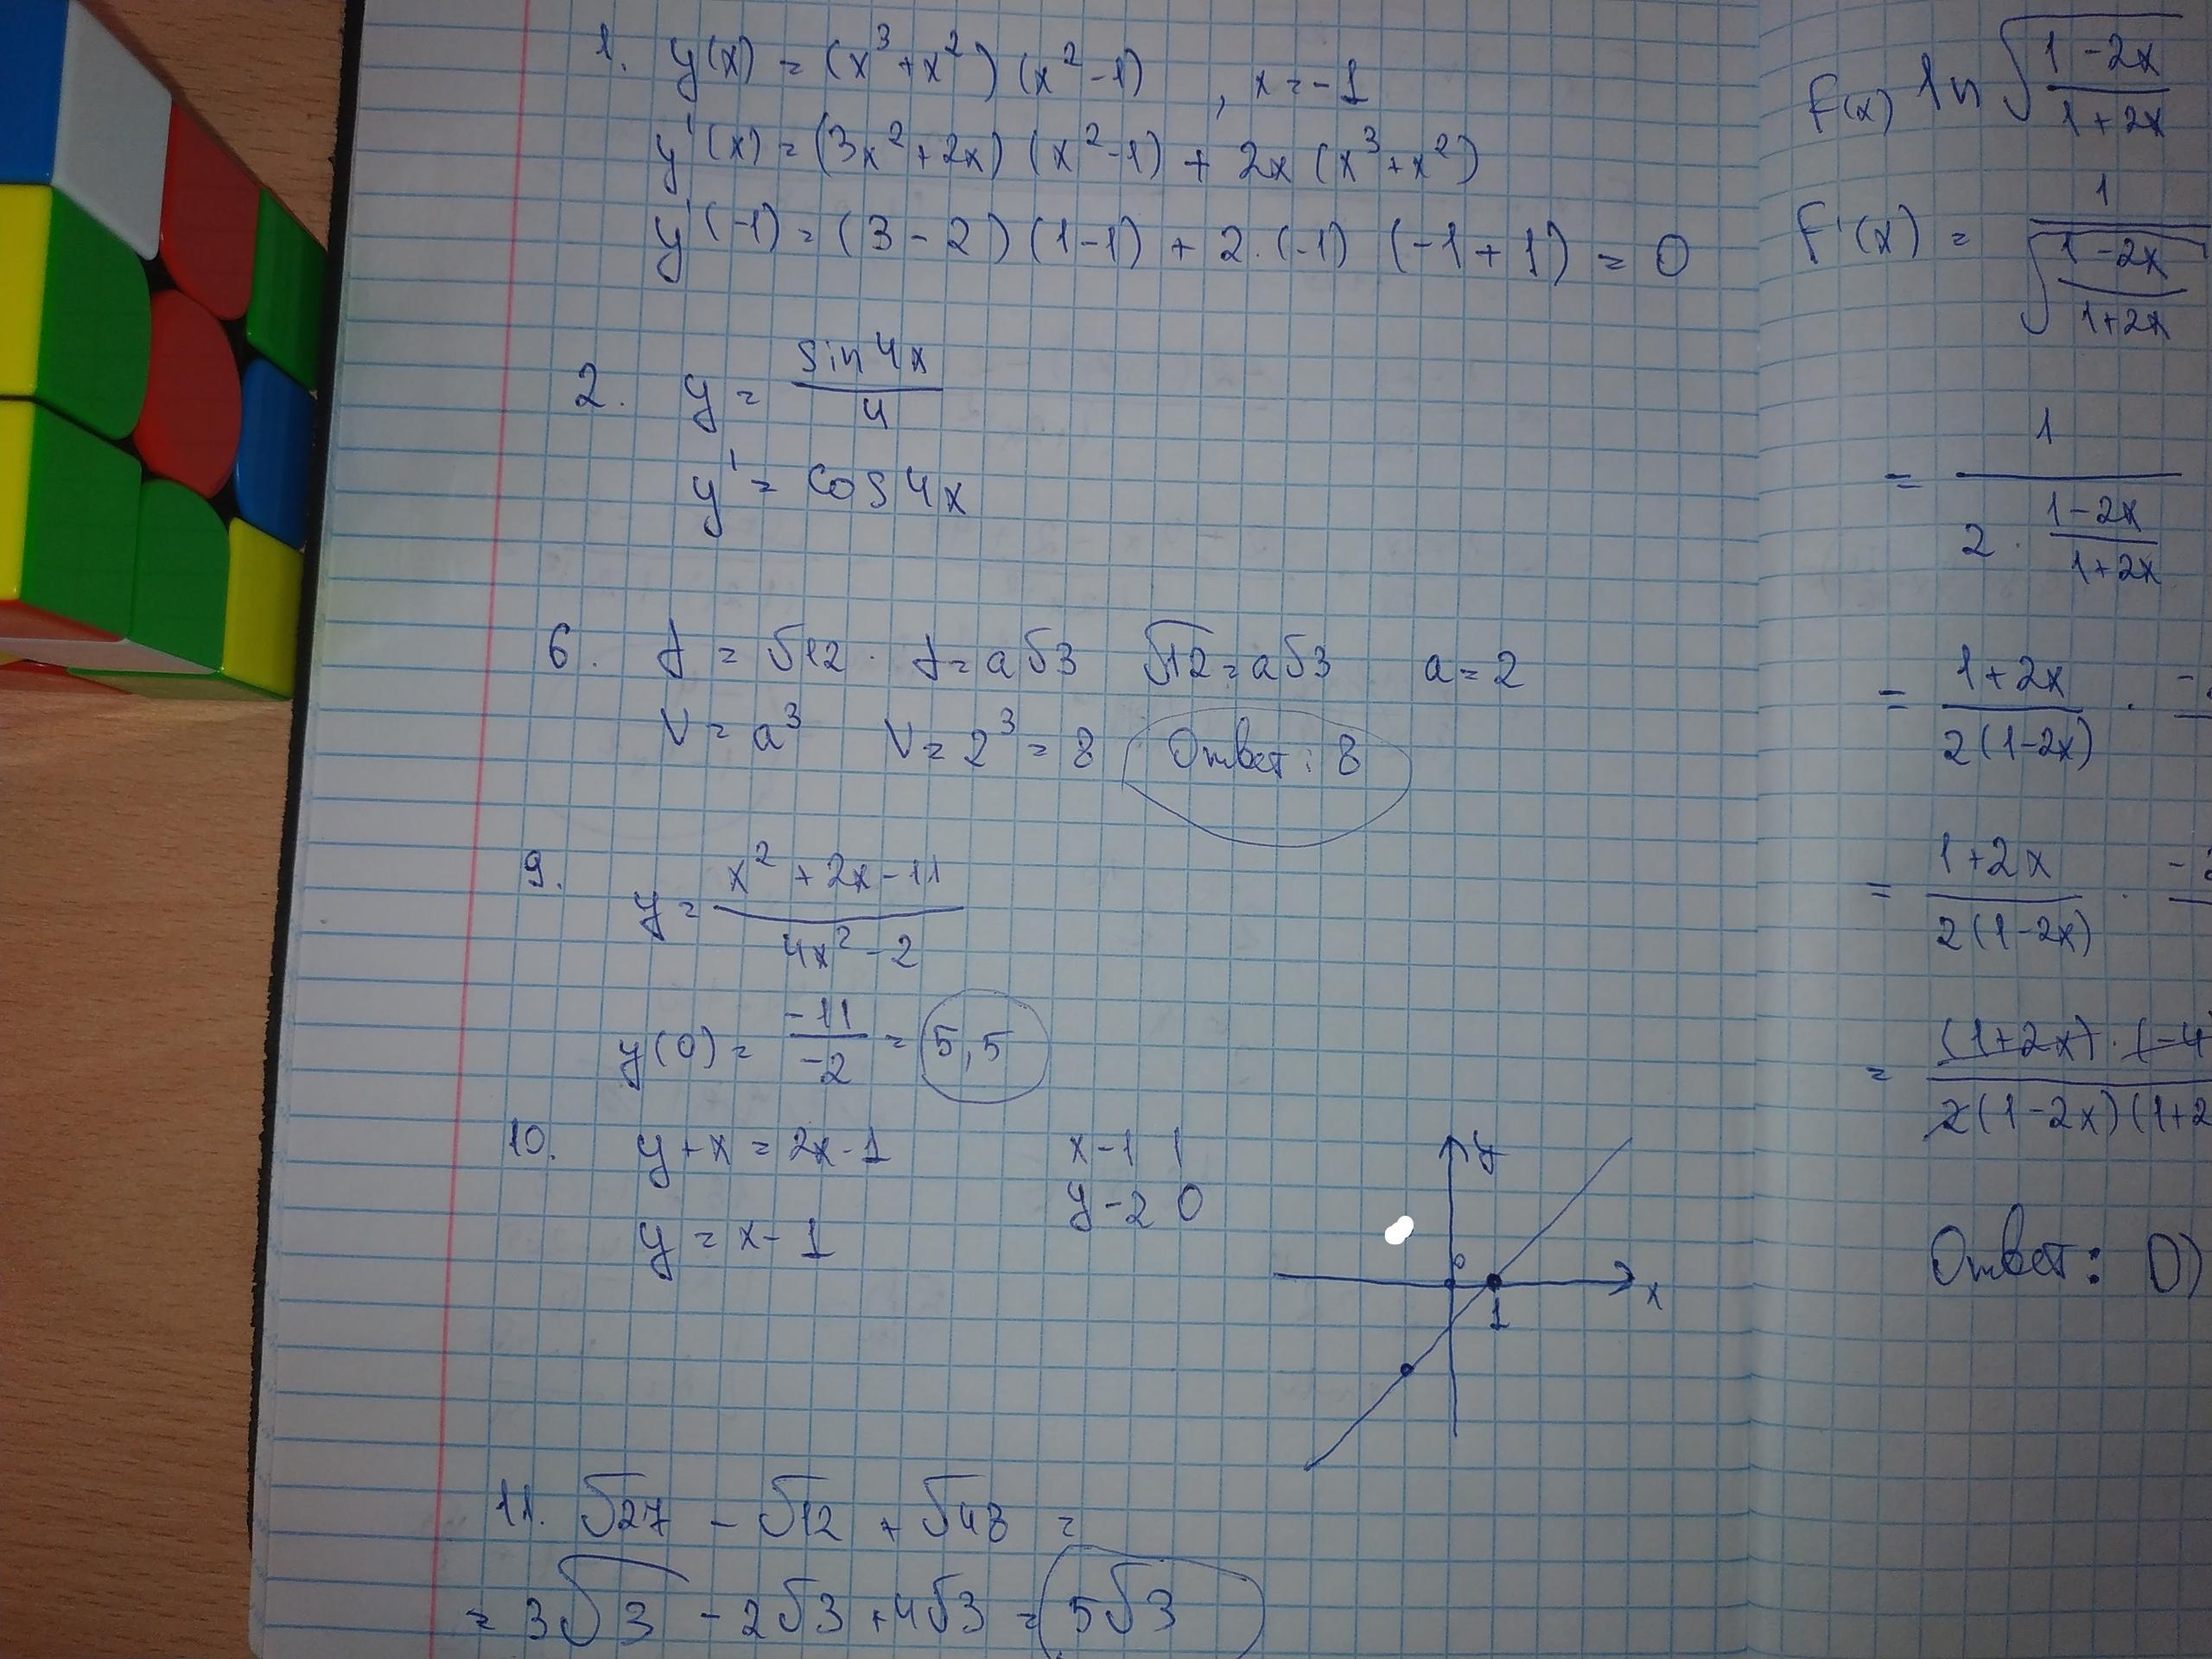 1. y(x) = (x³+x²)(x²-1) , x=-1
y'(x) = (3x²+2x)(x²-1) + 2x(x³+x²)
y'(-1) = (3-2)(1-1) + 2·(-1)(-1+1) = 0
2. y = sin4x / 4
y' = cos4x
6. d = √12 · d = a√3 √12 = a√3 a = 2
V = a³ V = 2³ = 8 Ответ: 8
9. y = (x²+2x-11) / (4x²-2)
y(0) = -11 / -2 = 5,5
10. y+x = 2x-1
y = x-1
x -1 1
y -2 0
y
0
x
1
11. √27 - √12 + √48 =
= 3√3 - 2√3 + 4√3 = 5√3
F(x) ln √((1-2x) / (1+2x))
F'(x) = 1 / √((1-2x) / (1+2x))
= 1 / (2 · (1-2x) / (1+2x))
= (1+2x) / (2(1-2x)) · -
= (1+2x) / (2(1-2x)) · -
= (1+2x)·(-4 / 2(1-2x)(1+2
Ответ: D)